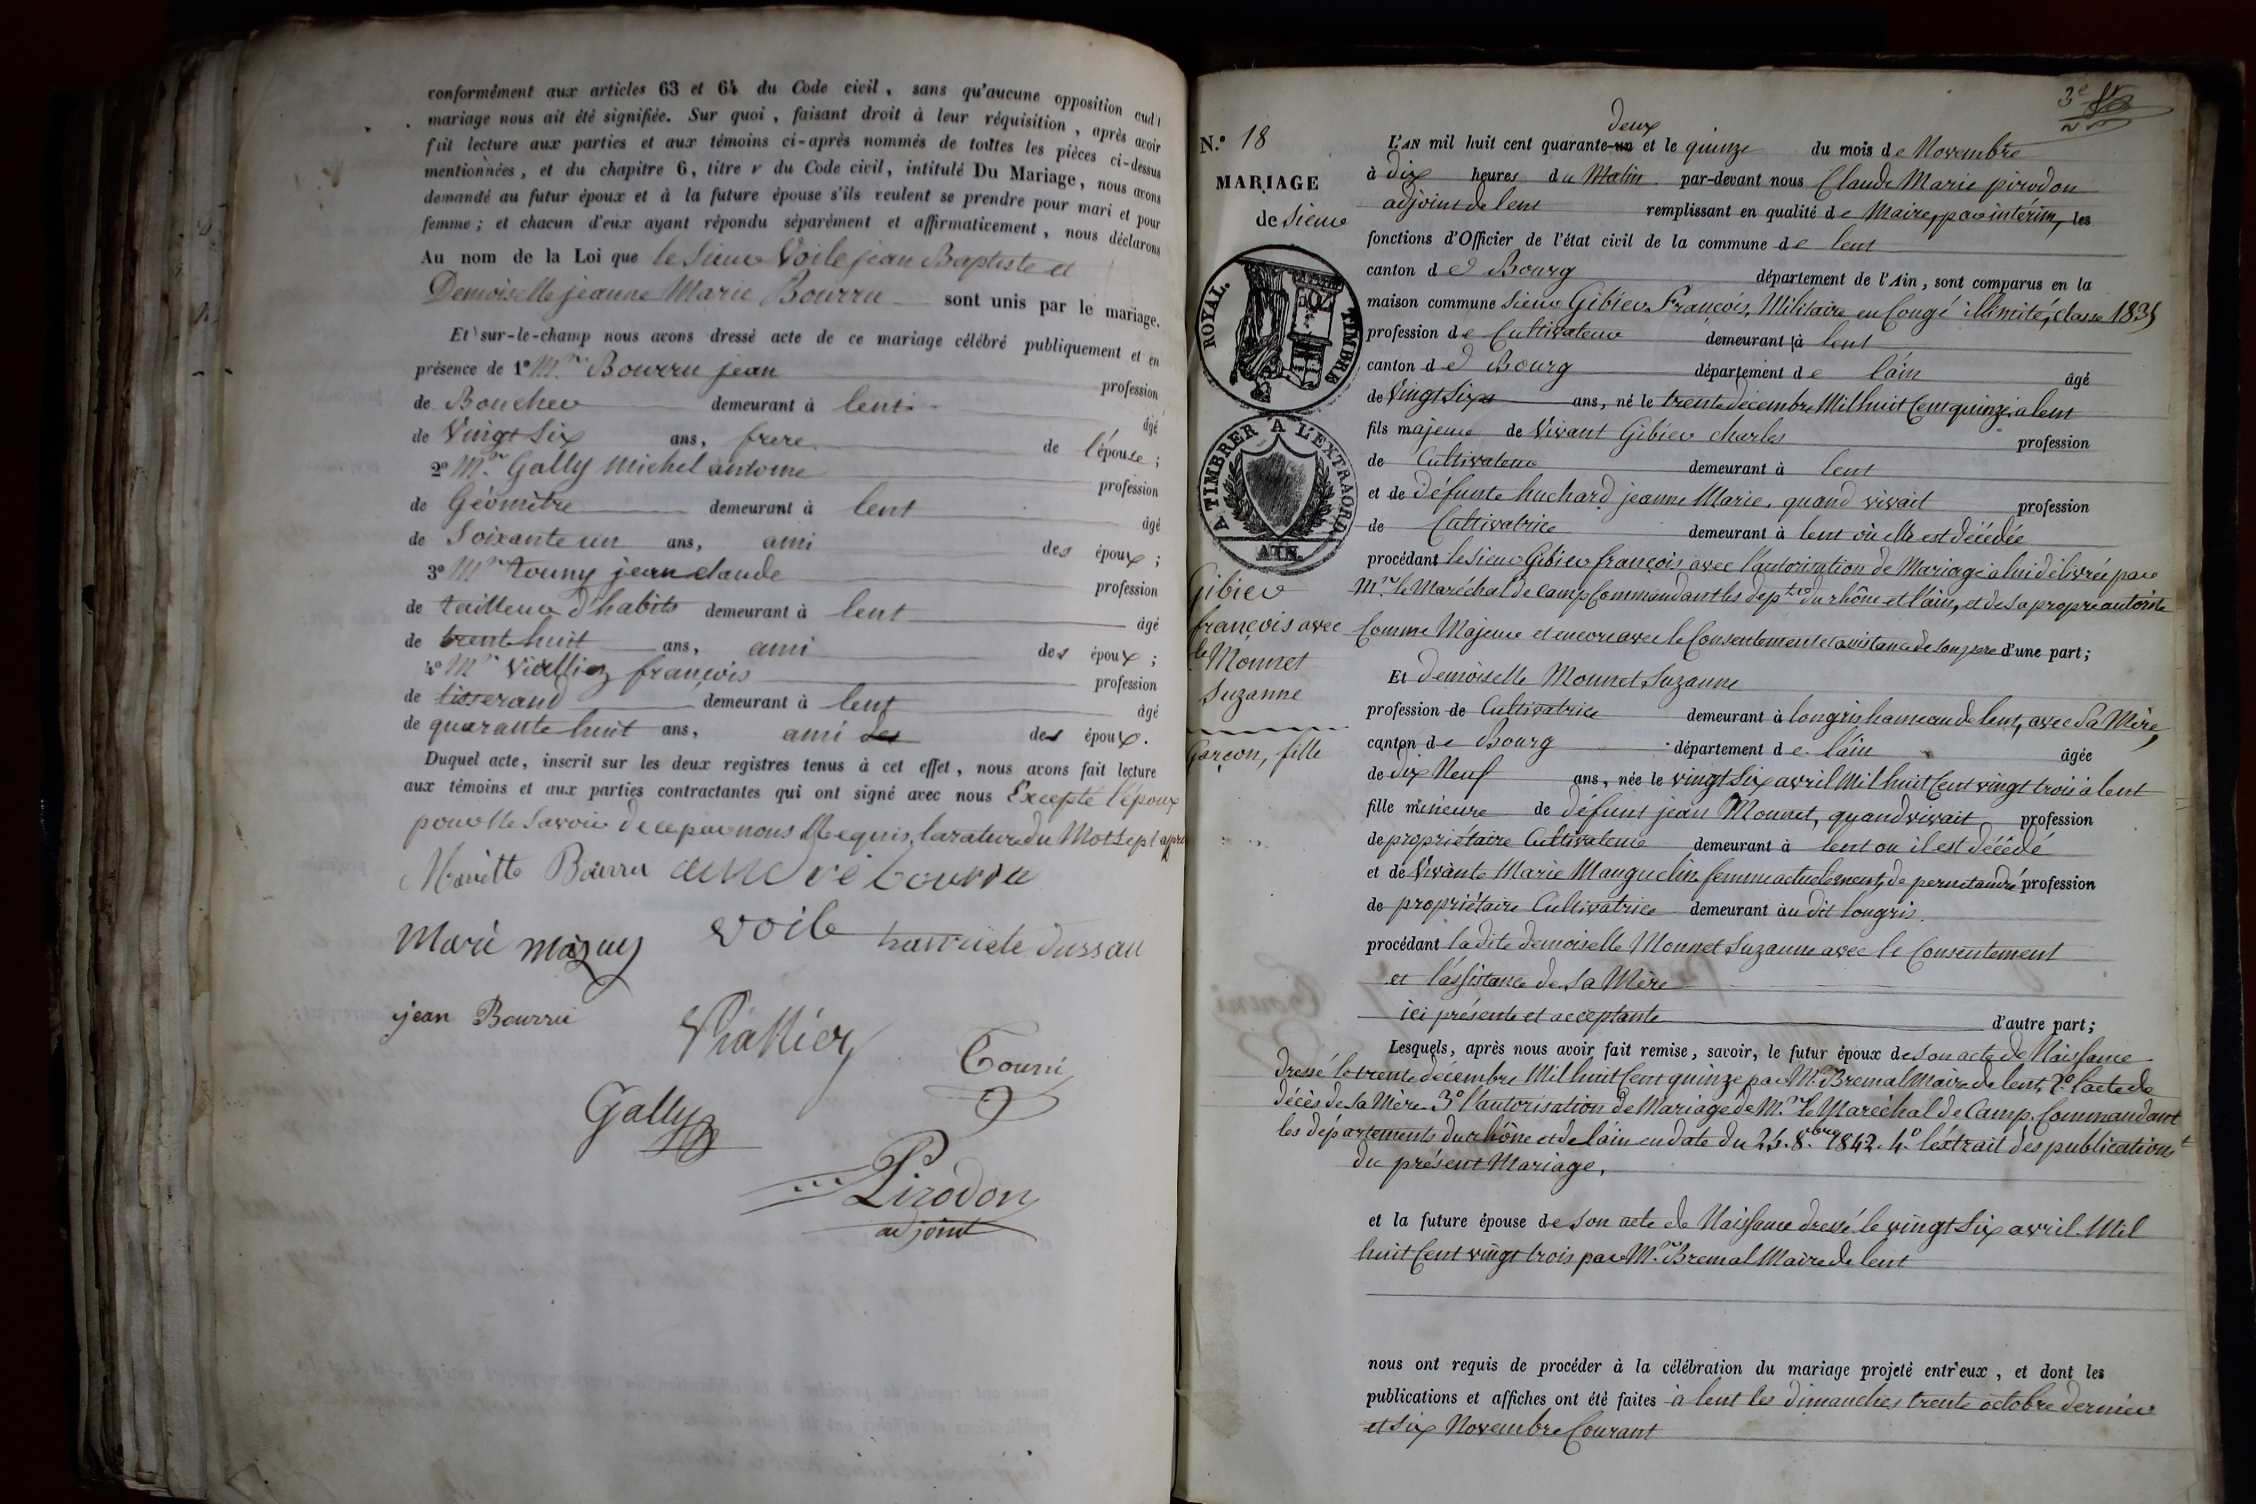 conformément aux articles 63 et 64 du Code civil, sans qu'aucune opposition audit
mariage nous ait été signifiée. Sur quoi, faisant droit à leur réquisition, après avoir
fait lecture aux parties et aux témoins ci-après nommés de toutes les pièces ci-dessus
mentionnées, et du chapitre 6, titre v du Code civil, intitulé Du Mariage, nous avons
demandé au futur époux et à la future épouse s'ils veulent se prendre pour mari et pour
femme; et chacun d'eux ayant répondu séparément et affirmativement, nous déclarons
Au nom de la Loi que le Sieur Voile jean Baptiste et
Demoiselle jeanne Marie Bourru sont unis par le mariage.
Et sur-le-champ nous avons dressé acte de ce mariage célébré publiquement et en
présence de 1° Mr. Bourru jean profession
de Boucher demeurant à lent âgé
de Vingt Six ans, frere de l'épouse;
2° Mr. Gally Michel antoine profession
de Géomètre demeurant à lent âgé
de Soixante un ans, ami des époux;
3° Mr. touny jean claude profession
de tailleur d'habits demeurant à lent âgé
de trente huit ans, ami des époux;
4° Mr Viallier françois profession
de tisserand demeurant à lent âgé
de quarante huit ans, ami des des époux.
Duquel acte, inscrit sur les deux registres tenus à cet effet, nous avons fait lecture
aux témoins et aux parties contractantes qui ont signé avec nous Excepté l'époux
pour ne Savoir de ce par nous Requis, la rature du Mot Sept
Mariette Bourru
Marie voile dussau
jean Bourru Viallier Tourni
Gally
Pirodon
adjoint
3e
N.° 18
MARIAGE
de Sieur
ROYAL. TIMBRE
A TIMBRER A L'EXTRAORD.
AIN.
Gibier
françois avec
le Monnet
Suzanne
Garçon, fille
deux
L'AN mil huit cent quarante-un et le quinze du mois de Novembre
à dix heures du Matin par-devant nous Claude Marie pirodon
adjoint de lent remplissant en qualité de Maire, par intérim, les
fonctions d'Officier de l'état civil de la commune de lent
canton de Bourg département de l'Ain, sont comparus en la
maison commune Sieur Gibier François, Militaire en Congé illimité, classe 1835
profession de Cultivateur demeurant à lent
canton de Bourg département de l'ain âgé
de Vingt Six ans, né le trente décembre Mil huit Cent quinze à lent
fils majeur de Vivant Gibier charles profession
de Cultivateur demeurant à lent
et de défunte huchard jeanne Marie, quand vivait profession
de Cultivatrice demeurant à lent où elle est décédée
procédant le Sieur Gibier françois avec l'autorisation de Mariage à lui délivrée par
Mr. le Maréchal de Camp Commandant les dépts du rhône et l'ain, et de sa propre autorité
Comme Majeur et encore avec le Consentement et assistance de son pere d'une part;
Et demoiselle Monnet Suzanne
profession de Cultivatrice demeurant à longris hameau de lent, avec Sa Mère,
canton de Bourg département de l'ain âgée
de dix Neuf ans, née le vingt Six avril Mil huit Cent vingt trois à lent
fille mineure de défunt jean Monnet, quand vivait profession
de propriétaire Cultivateur demeurant à lent ou il est décédé
et de Vivante Marie Manguelin femme actuelement, de pernetandré profession
de propriétaire Cultivatrice demeurant au dit longris.
procédant la dite demoiselle Monnet Suzanne avec le Consentement
et l'assistance de Sa Mère
ici présente et acceptante d'autre part;
Lesquels, après nous avoir fait remise, savoir, le futur époux de son acte de Naissance
dressé le trente décembre Mil huit Cent quinze par Mr. Bremal Maire de lent, 2° l'acte de
décès de Sa Mère. 3° l'autorisation de Mariage de Mr. le Maréchal de Camp Commandant
les départements du rhône et de l'ain en date du 25. 8.bre 1842. 4° l'éxtrait des publications
du présent Mariage.
et la future épouse de son acte de Naissance dressé le vingt Six avril Mil
huit Cent vingt trois par Mr. Bremal Maire de lent
nous ont requis de procéder à la célébration du mariage projeté entr'eux, et dont les
publications et affiches ont été faites à lent les dimanches trente octobre dernier
et Six Novembre Courant